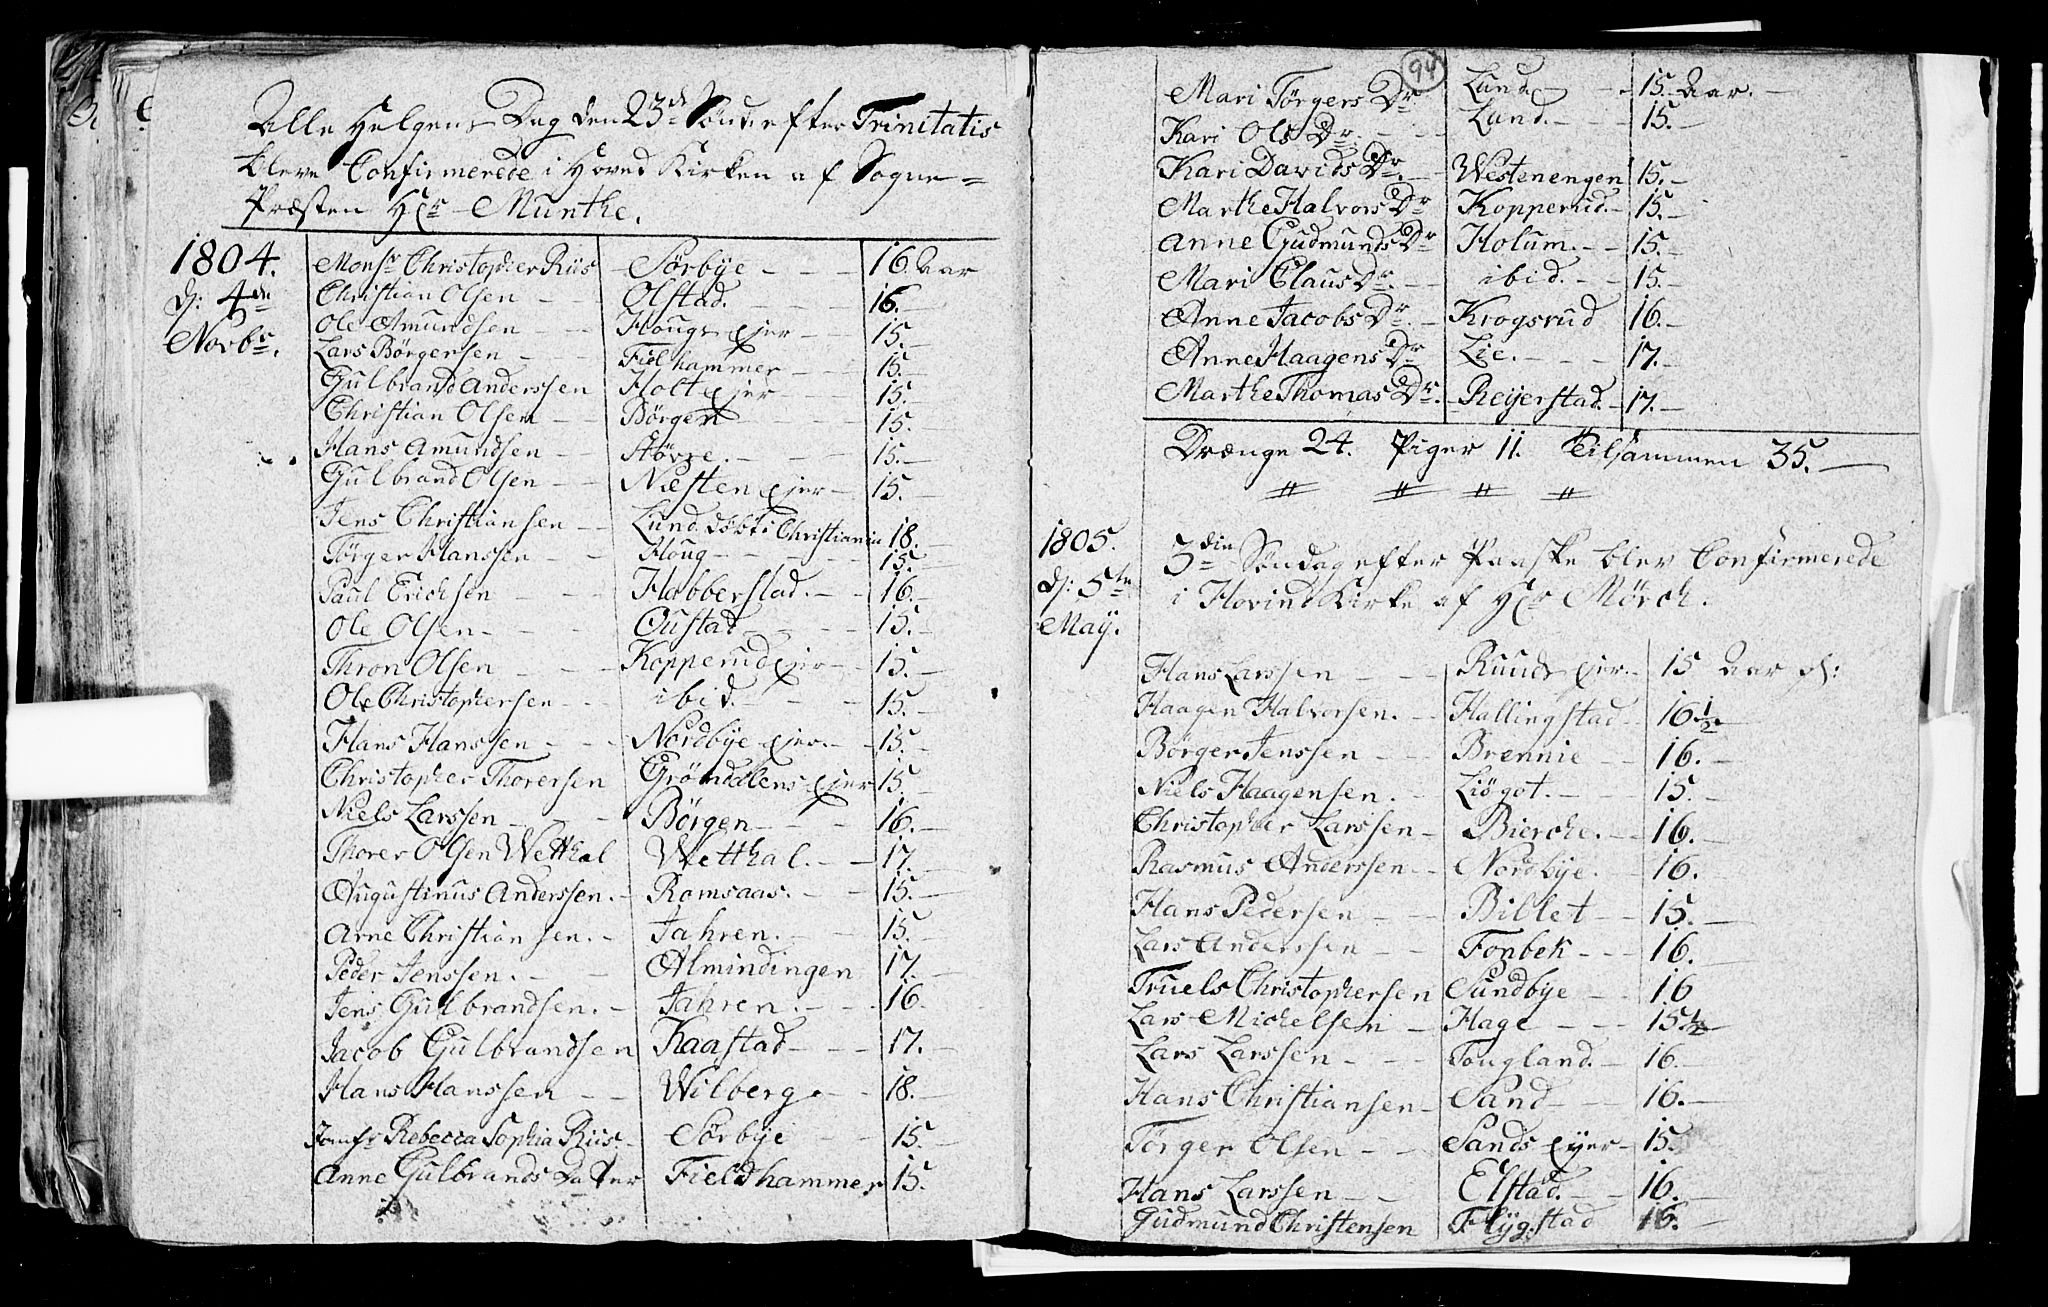 Alle Helgens Dag den 23de Sønd: efter Trinitatis
bleve Confirmerede i Hoved Kirken af Sogne=
Præsten Hr Munthe.
1804. Monsr Christopher Riis Sørbye - - - 16 Aar
d: 4de Christian Olsen - - Olstad. - - - 16. -
Novbr. Ole Amundsen - - Hougs Ejer - - 15. -
Lars Børgersen - - Fieldhammer - - 15. -
Gulbrand Anderssen Holt Ejer - - 15. -
Christian Olsen - - Børgen - - - 15. -
Hans Amundsen - - Større. - - - 15. -
Gulbrand Olsen - - Næsten Ejer - 15. -
Jens Christiansen - - Lund. døbt i Christiania 18. -
Tørger Hanssen - - Houg - - - 15. -
Paul Erichsen - - Habberstad. - - 16. -
Ole Olsen - - - Oustad - - - 15. -
Thron Olsen - - Kopperud Ejer - - 15. -
Ole Christophersen - - ibid. - - - 15. -
Hans Hanssen - - - Nordbye Ejer. - - 15. -
Christopher Thorersen Grøndalens Ejer 15. -
Niels Larssen - - - Børgen - - - 16. -
Thorer Olsen Wetthal Wetthal. - - 17. -
Augustinus Anderssen. - Romsaas. - - 15. -
Arne Christiansen. - Jahren. - - 15. -
Peder Jenssen. - - Almindingen 17. -
Jens Gulbrandsen. - Jahren. - - - 16. -
Jacob Gulbrandsen Kaastad - - - 17. -
Hans Hanssen - - Wilberg - - - 18. -
Jomfr Rebecca Sophia Riis. - Sørbye - - 15. -
Anne Gulbrands Datter Fieldhammer 15. -
94
Mari Tørgers Dr Lund. - - - 15. Aar. -
Kari Ols Dr. - - - Lund. - - - 15. -
Kari Davids Dr. - Westenengen 15. -
Marthe Halvors Dr Kopperud. - 15. -
Anne Gudmunds Dr Holum. - - 15. -
Mari Claus Dr. - - ibid. - - 15. -
Anne Jacobs Dr. - Krogsrud 16. -
Anne Haagens Dr Lie. - - - 17. -
Marthe Thomas Dr. - Reijerstad. - 17. -
Drænge 24. Piger 11. Tilsammen 35. -
1805. 3die Søndag efter Paaske blev Confirmerede
d: 5te i Hovind Kirke af Hr Mørch.
May.
Hans Larssen - - - Ruuds Ejer. - 15 Aar
Haagen Halvorsen. - - Hallingstad - 16 1/2 -
Børger Jenssen - - - Brennie - - 16. -
Niels Haagensen. - Liøgot. - - - 15. -
Christopher Larssen - Bierche. - - 16. -
Rasmus Anderssen - - Nordbye. - - 16. -
Hans Pedersen - - - Billet - - 15. -
Lars Anderssen - - Fonbek - - - 16. -
Truels Christophersen Sundbye - - 16
Lars Michelsen - Hage - - - 15 1/2 -
Lars Larssen - - - Tougland. - 16. -
Hans Christiansen - Sand - - - 16. -
Tørger Olsen - - Sands Ejer - 15.
Hans Larssen - - - Elstad. - - 16. -
Gudmund Christensen Flygstad 16. -